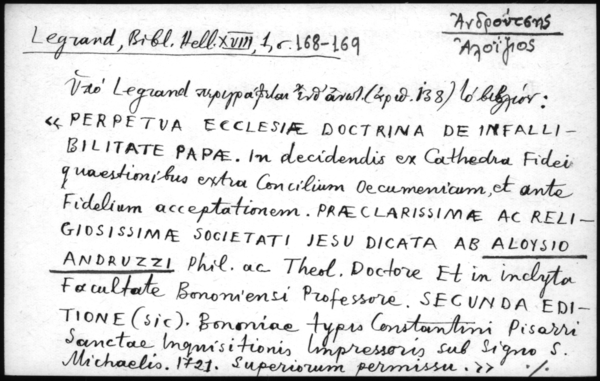 Ἀνδρούτσης
Ἀλοΐζιος
Legrand, Bibl. Hell. XVIII, 1, σ. 168-169
Ὑπό Legrand περιγράφεται ἔνθ' ἀνωτ. (ἀριθ. 138) τό βιβλίον:
« PERPETVA ECCLESIÆ DOCTRINA DE INFALLI-
BILITATE PAPÆ. In decidendis ex Cathedra Fidei
quaestionibus extra Concilium Oecumenicum, et ante
Fidelium acceptationem. PRÆCLARISSIMÆ AC RELI-
GIOSISSIMÆ SOCIETATI JESU DICATA AB ALOYSIO
ANDRUZZI Phil. ac Theol. Doctore Et in inclyta
Facultate Bononiensi Professore. SECUNDA EDI-
TIONE (sic). Bononiae typis Constantini Pisarri
Sanctae Inquisitionis Impressoris sub Signo S.
Michaelis. 1721. Superiorum permissu. » ./.